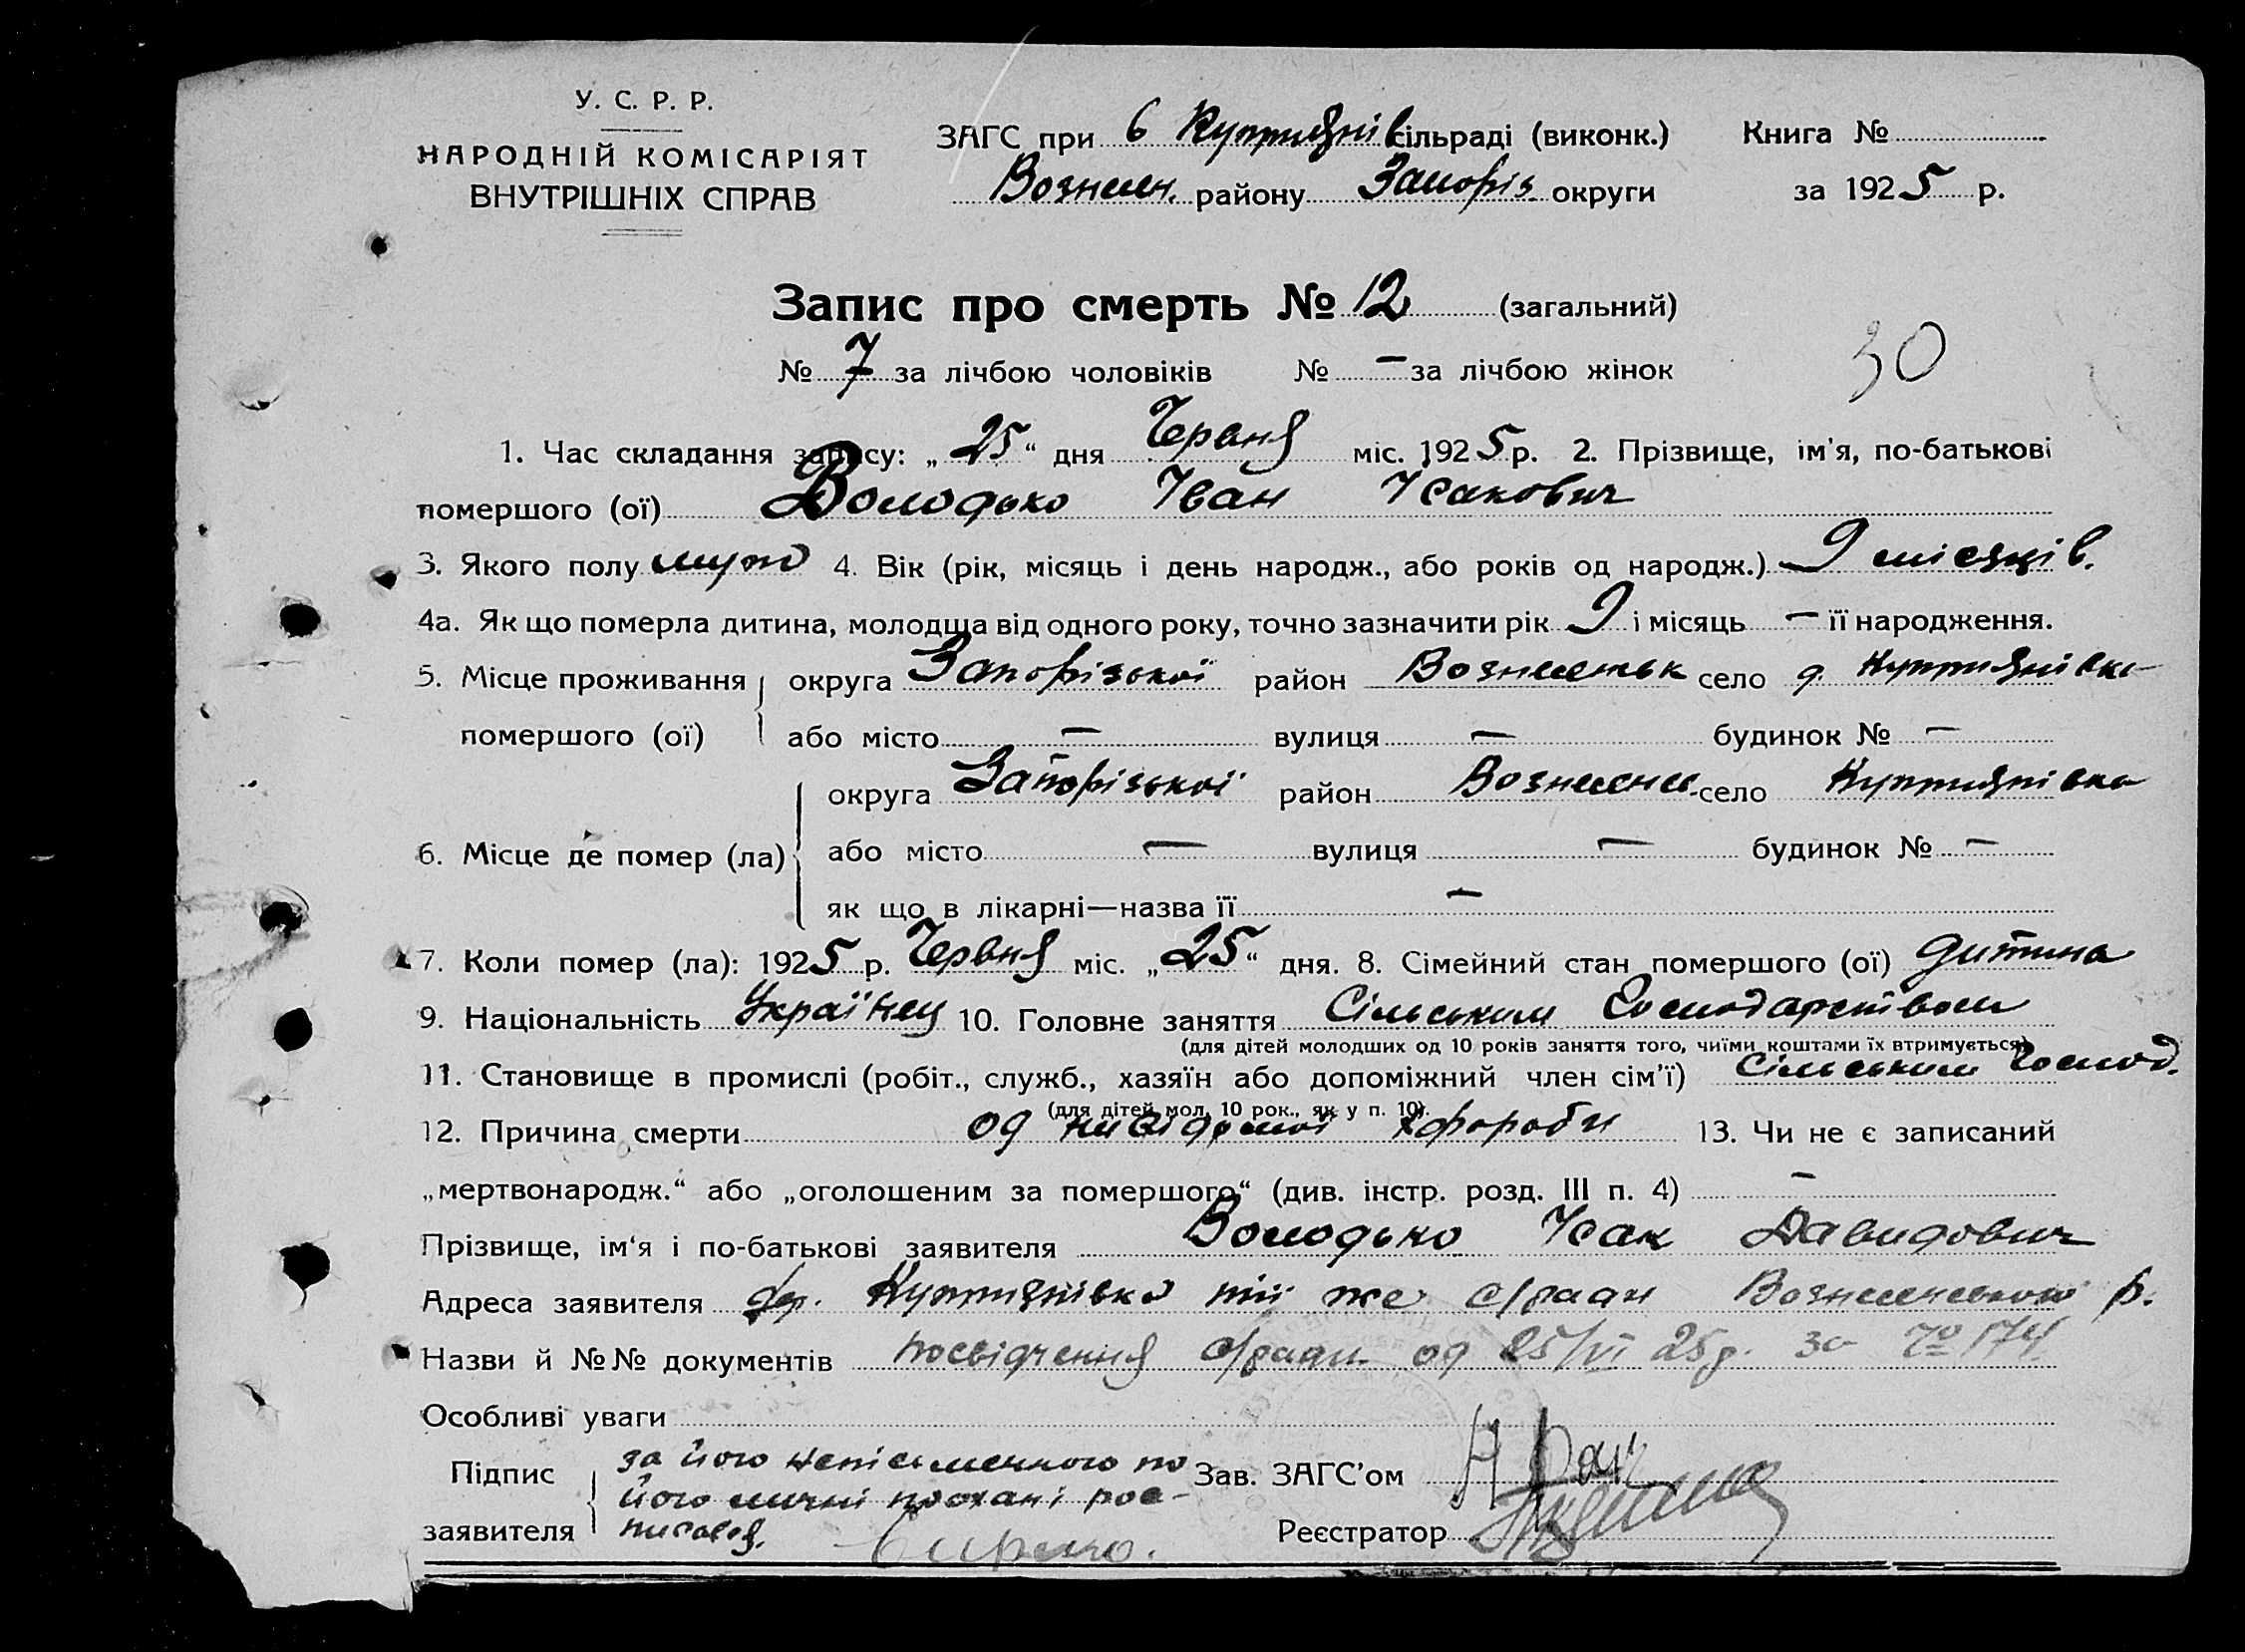 У. С. Р. Р.
НАРОДНІЙ КОМІСАРІЯТ
ВНУТРІШНІХ СПРАВ
ЗАГС при 6 Куприянів сільраді (виконк.) Книга №
Вознесен. району Запоріз. округи за 1925 р.
Запис про смерть № 12 (загальний)
№ 7 за лічбою чоловіків № — за лічбою жінок
30
1. Час складання запису: „25“ дня Червня міс. 1925 р. 2. Прізвище, ім'я, по-батькові
помершого (ої) Володько Іван Ісакович
3. Якого полу муж 4. Вік (рік, місяць і день народж., або років од народж.) 9 місяців.
4а. Як що померла дитина, молодша від одного року, точно зазначити рік 9 і місяць — її народження.
5. Місце проживання округа Запорізької район Вознесенськ село д. Куприянівка
помершого (ої) або місто — вулиця — будинок № —
округа Запорізької район Вознесенс. село Куприянівка
6. Місце де помер (ла) або місто — вулиця — будинок № —
як що в лікарні—назва її —
7. Коли помер (ла): 1925 р. Червня міс. „25“ дня. 8. Сімейний стан помершого (ої) дитина
9. Національність Українец 10. Головне заняття Сільським Господарством
(для дітей молодших од 10 років заняття того, чиїми коштами їх втримується)
11. Становище в промислі (робіт., служб., хазяїн або допоміжний член сім'ї) Сільським Господ.
(для дітей мол. 10 рок., як у п. 10).
12. Причина смерти од невідомої хфороби 13. Чи не є записаний
„мертвонародж.“ або „оголошеним за помершого“ (див. інстр. розд. III п. 4) —
Прізвище, ім'я і по-батькові заявителя Володько Ісак Давидович
Адреса заявителя Куприянівка тії же с/ради Вознесенського р.
Назви й №№ документів посвідчення с/ради од 25/VI 25р. за № 174
Особливі уваги
Підпис за його неписьменного по Зав. ЗАГС'ом
його личні прохані рос-
заявителя писався. Реєстратор